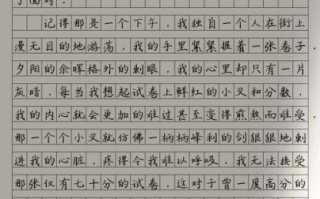 了面对。
记得那是一个下午，我独自一个人在街上
漫无目的地游荡，我的手里紧紧握着一张卷子，
夕阳的余晖格外的刺眼，我的心里却只有一片
灰暗，每当我想起试卷上鲜红的小叉和分数，
我的内心就会更加的难过甚至变得煎熬而难受
那一个个小叉就仿佛一柄柄峰利的剑狠狠地刺
进我的心脏，疼得令我难以呼吸。我无法接受
那张仅有七十分的试卷，这对于曾一度高分的